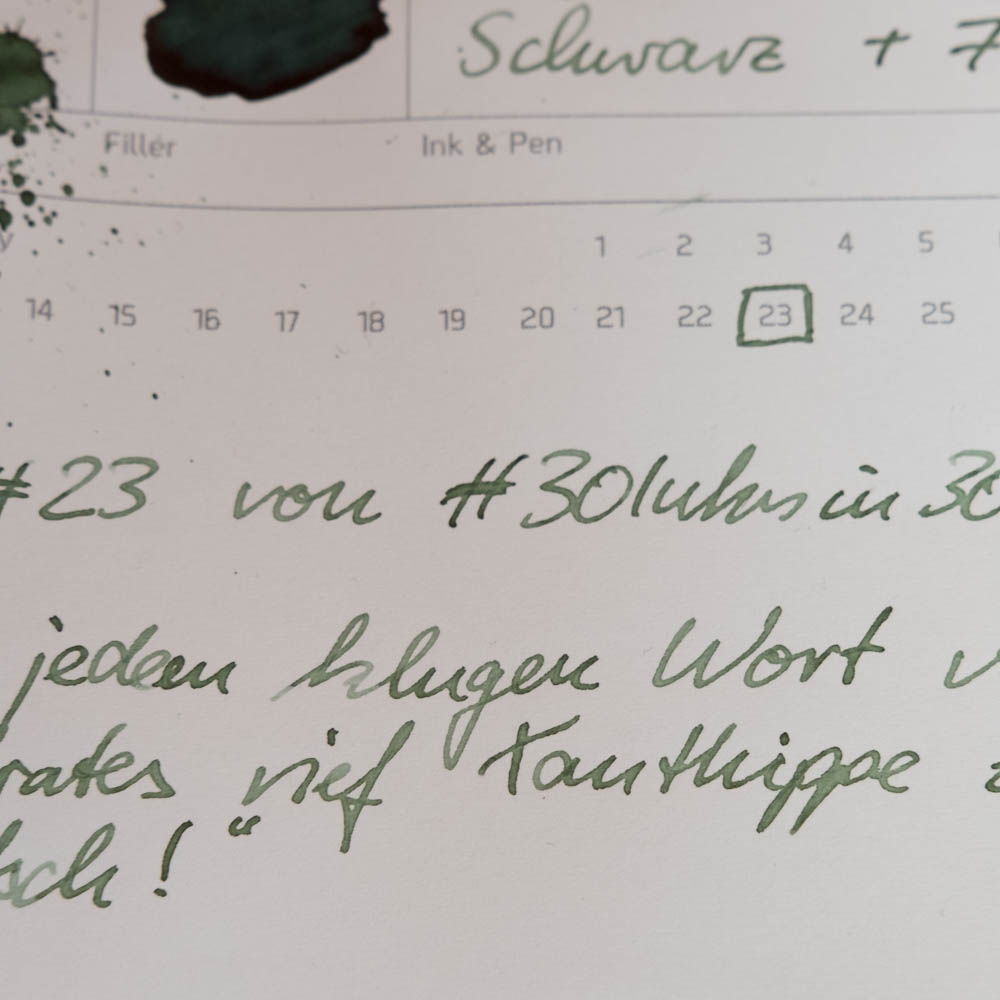 Schwarz + 7
Filler Ink & Pen
1 2 3 4 5
14 15 16 17 18 19 20 21 22 23 24 25
#23 von #30inks in 30
jedem klugen Wort v
rates rief Xanthippe
sch!"